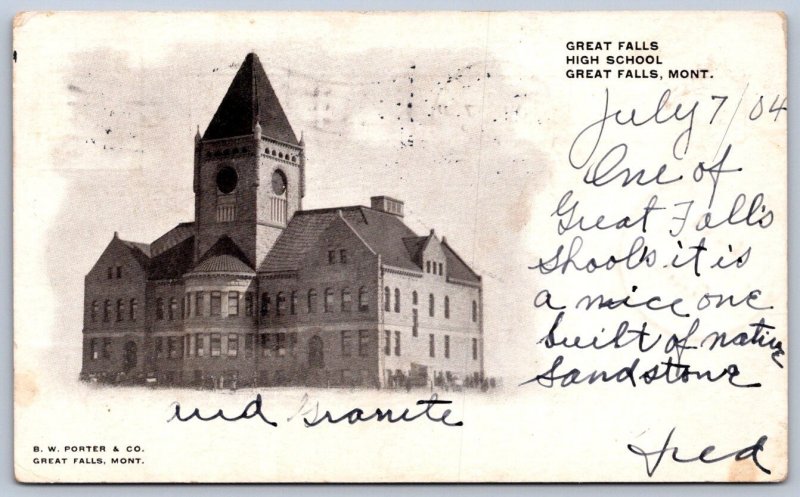 GREAT FALLS
HIGH SCHOOL
GREAT FALLS, MONT.
July 7/04
One of
Great Falls
Shools it is
a nice one
built of native
Sandstone
and Granite
Fred
B. W. PORTER & CO.
GREAT FALLS, MONT.